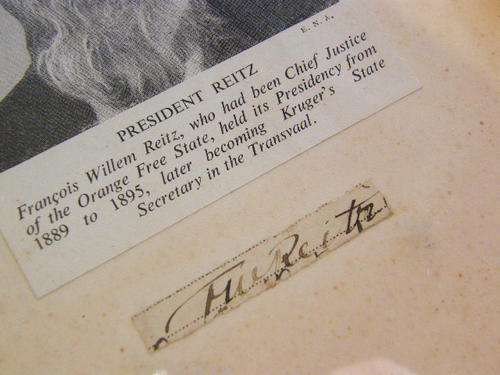 E. N. J.
PRESIDENT REITZ
François Willem Reitz, who had been Chief Justice
of the Orange Free State, held its Presidency from
1889 to 1895, later becoming Kruger's State
Secretary in the Transvaal.
FW Reitz